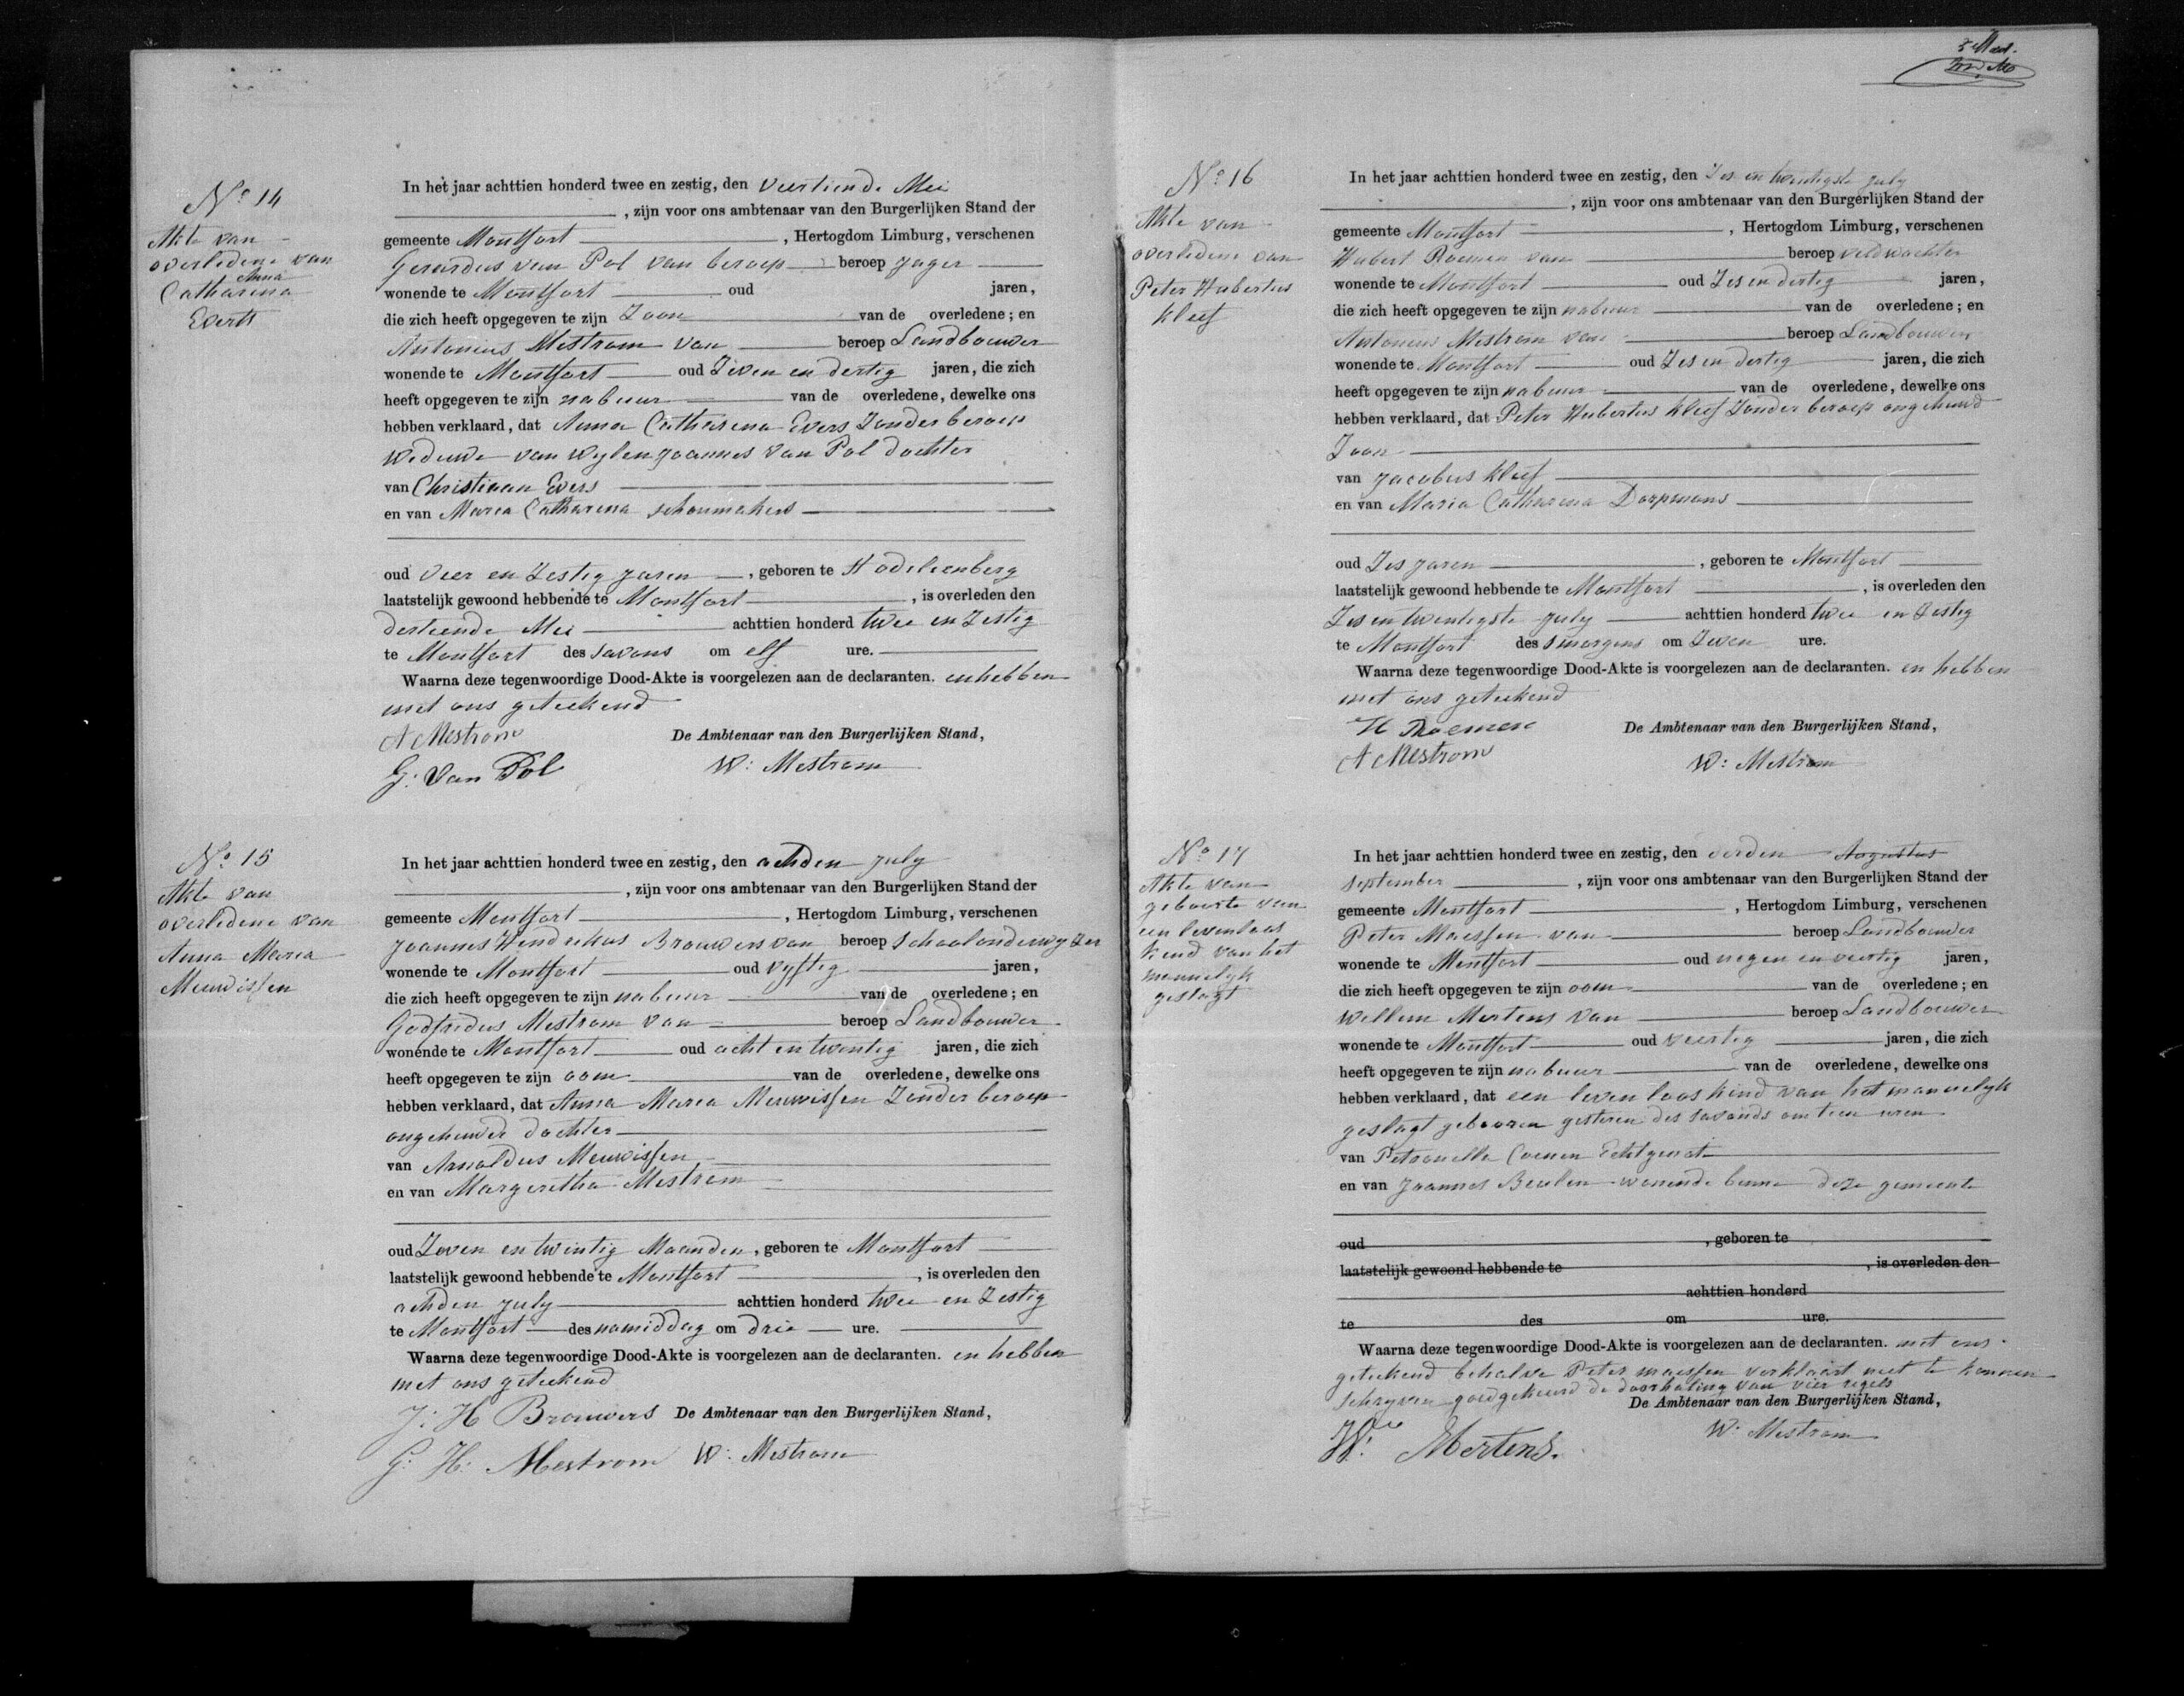 No 14
Akte van
overledene van
Anna
Catharina
Everts
In het jaar achttien honderd twee en zestig, den veertiende Mei
, zijn voor ons ambtenaar van den Burgerlijken Stand der
gemeente Montfort , Hertogdom Limburg, verschenen
Gerardus van Pol van beroep beroep Jager
wonende te Montfort oud jaren,
die zich heeft opgegeven te zijn Zoon van de overledene; en
Antonius Mestrom van beroep Landbouwer
wonende te Montfort oud Zeven en dertig jaren, die zich
heeft opgegeven te zijn nabuur van de overledene, dewelke ons
hebben verklaard, dat Anna Catharina Evers Zonder beroep
Weduwe van wylen Joannes van Pol dochter
van Christiaan Evers
en van Maria Catharina schoumakers
oud veer en Zestig jaren , geboren te St Odelienberg
laatstelijk gewoond hebbende te Montfort , is overleden den
derteende Mei achttien honderd twee en Zestig
te Montfort des savons om elf ure.
Waarna deze tegenwoordige Dood-Akte is voorgelezen aan de declaranten. en hebben
met ons geteekend
A Mestrom De Ambtenaar van den Burgerlijken Stand,
G: van Pol W: Mestrom
No 15
Akte van
overledene van
Anna Maria
Meuwissen
In het jaar achttien honderd twee en zestig, den achden July
, zijn voor ons ambtenaar van den Burgerlijken Stand der
gemeente Montfort , Hertogdom Limburg, verschenen
Joannes Hendrikus Brouwers van beroep Schoolonderwyzer
wonende te Montfort oud vyftig jaren,
die zich heeft opgegeven te zijn nabuur van de overledene; en
Godfredus Mestrom van beroep Landbouwer
wonende te Montfort oud acht en twentig jaren, die zich
heeft opgegeven te zijn oom van de overledene, dewelke ons
hebben verklaard, dat Anna Maria Meuwissen Zonder beroep
ongehuwde dochter
van Arnoldus Meuwissen
en van Margeretha Mestrom
oud Zeven en twintig Maanden , geboren te Montfort
laatstelijk gewoond hebbende te Montfort , is overleden den
achden July achttien honderd twee en Zestig
te Montfort des namiddag om drie ure.
Waarna deze tegenwoordige Dood-Akte is voorgelezen aan de declaranten. en hebben
met ons geteekend
J: H Brouwers De Ambtenaar van den Burgerlijken Stand,
G: H: Mestrom W: Mestrom
No 16
Akte van
overledene van
Peter Hubertus
Kleef
In het jaar achttien honderd twee en zestig, den Zes en twentigste July
, zijn voor ons ambtenaar van den Burgerlijken Stand der
gemeente Montfort , Hertogdom Limburg, verschenen
Hubert Roemen van beroep veldwachter
wonende te Montfort oud Zes en dertig jaren,
die zich heeft opgegeven te zijn nabuur van de overledene; en
Antonius Mestrom van beroep Landbouwer
wonende te Montfort oud Zes en dertig jaren, die zich
heeft opgegeven te zijn nabuur van de overledene, dewelke ons
hebben verklaard, dat Peter Hubertus Kleef Zonder beroep ongehuwd
Zoon
van Jacobus Kleef
en van Maria Catharina Dorpmans
oud Zes jaren , geboren te Montfort
laatstelijk gewoond hebbende te Montfort , is overleden den
Zes en twentigste July achttien honderd twee en Zestig
te Montfort des smorgens om Zeven ure.
Waarna deze tegenwoordige Dood-Akte is voorgelezen aan de declaranten. en hebben
met ons geteekend
H Roemen De Ambtenaar van den Burgerlijken Stand,
A Mestrom W: Mestrom
No 17
Akte van
geboorte van
een levenloos
kind van het
mannelyk
geslagt
In het jaar achttien honderd twee en zestig, den derden Augustus
September , zijn voor ons ambtenaar van den Burgerlijken Stand der
gemeente Montfort , Hertogdom Limburg, verschenen
Peter Maessen van beroep Landbouwer
wonende te Montfort oud negen en veertig jaren,
die zich heeft opgegeven te zijn oom van de overledene; en
Willem Mertens van beroep Landbouwer
wonende te Montfort oud veertig jaren, die zich
heeft opgegeven te zijn nabuur van de overledene, dewelke ons
hebben verklaard, dat een levenloos kind van het mannelyk
geslagt gebooren gisteren des savonds om tien uren
van Petronella Coenen Echtgenoot
en van Joannes Beulen wonende binne deze gemeente
oud , geboren te
laatstelijk gewoond hebbende te , is overleden den
achttien honderd
te des om ure.
Waarna deze tegenwoordige Dood-Akte is voorgelezen aan de declaranten. met ons
geteekend behalve Peter maessen verklaart niet te konnen
schryven goedgekeurd de doorhaling van vier regels
De Ambtenaar van den Burgerlijken Stand,
W: Mertens. W: Mestrom